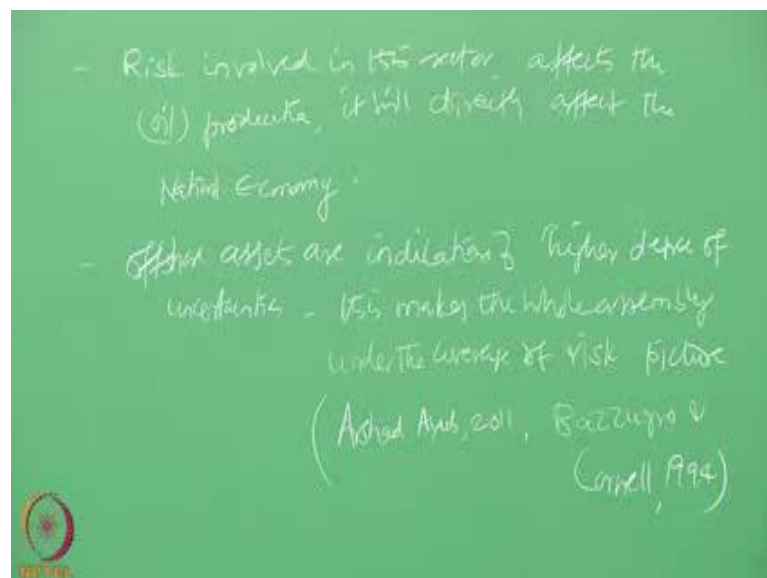 - Risk involved in this sector affects the
(oil) production, it will directly affect the
National Economy.
- offshore assets are indication of higher degree of
uncertainties - this makes the whole assembly
under the coverage of risk picture
(Arshad Ayub, 2011, Bazzurro &
Cornell, 1994)
NPTEL